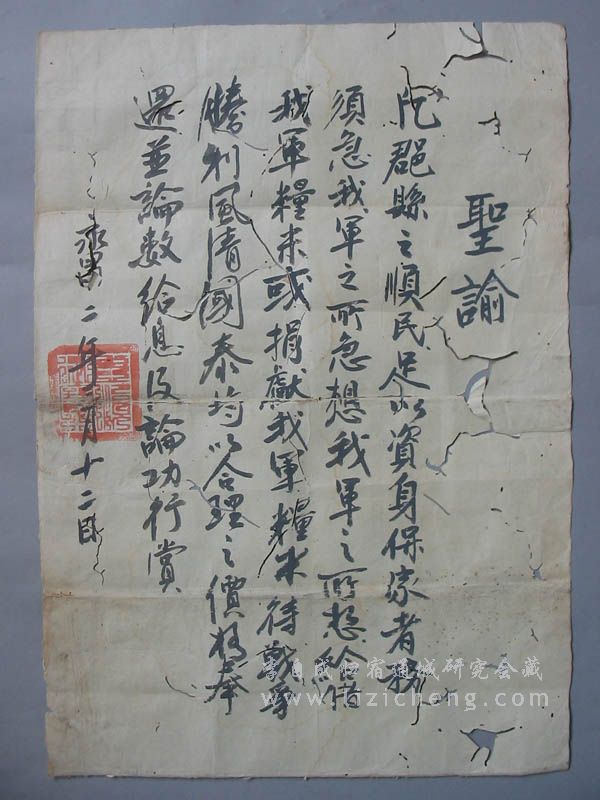 聖諭
凡郡縣之順民足以資身保家者務
須急我軍之所急想我軍之所想給借
我軍糧米或捐獻我軍糧米待戰爭
勝利風清國泰均以合理之價格奉
還並論數給息及論功行賞
永昌二年 月十二日
李自成归宿通城研究会藏
www.lzicheng.com